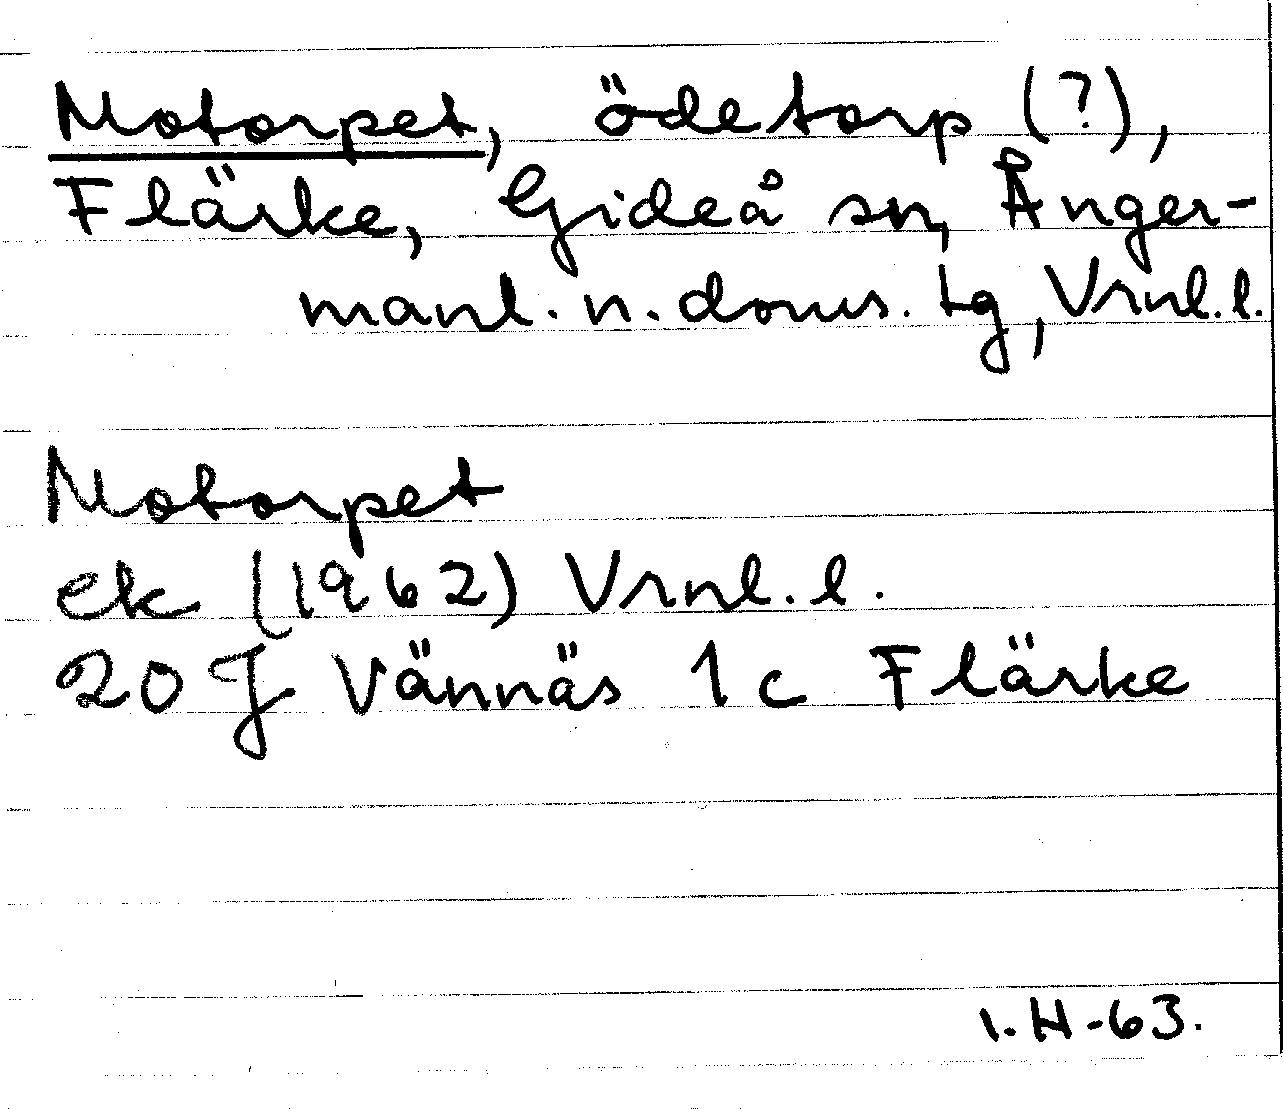 Motorpet, ödetorp (?),
Flärke, Gideå sn, Ånger-
manl. n. doms. tg, Vrnl. l.
Motorpet
ek (1962) Vrnl. l.
20 J Vännäs 1 c Flärke
I. H -63.